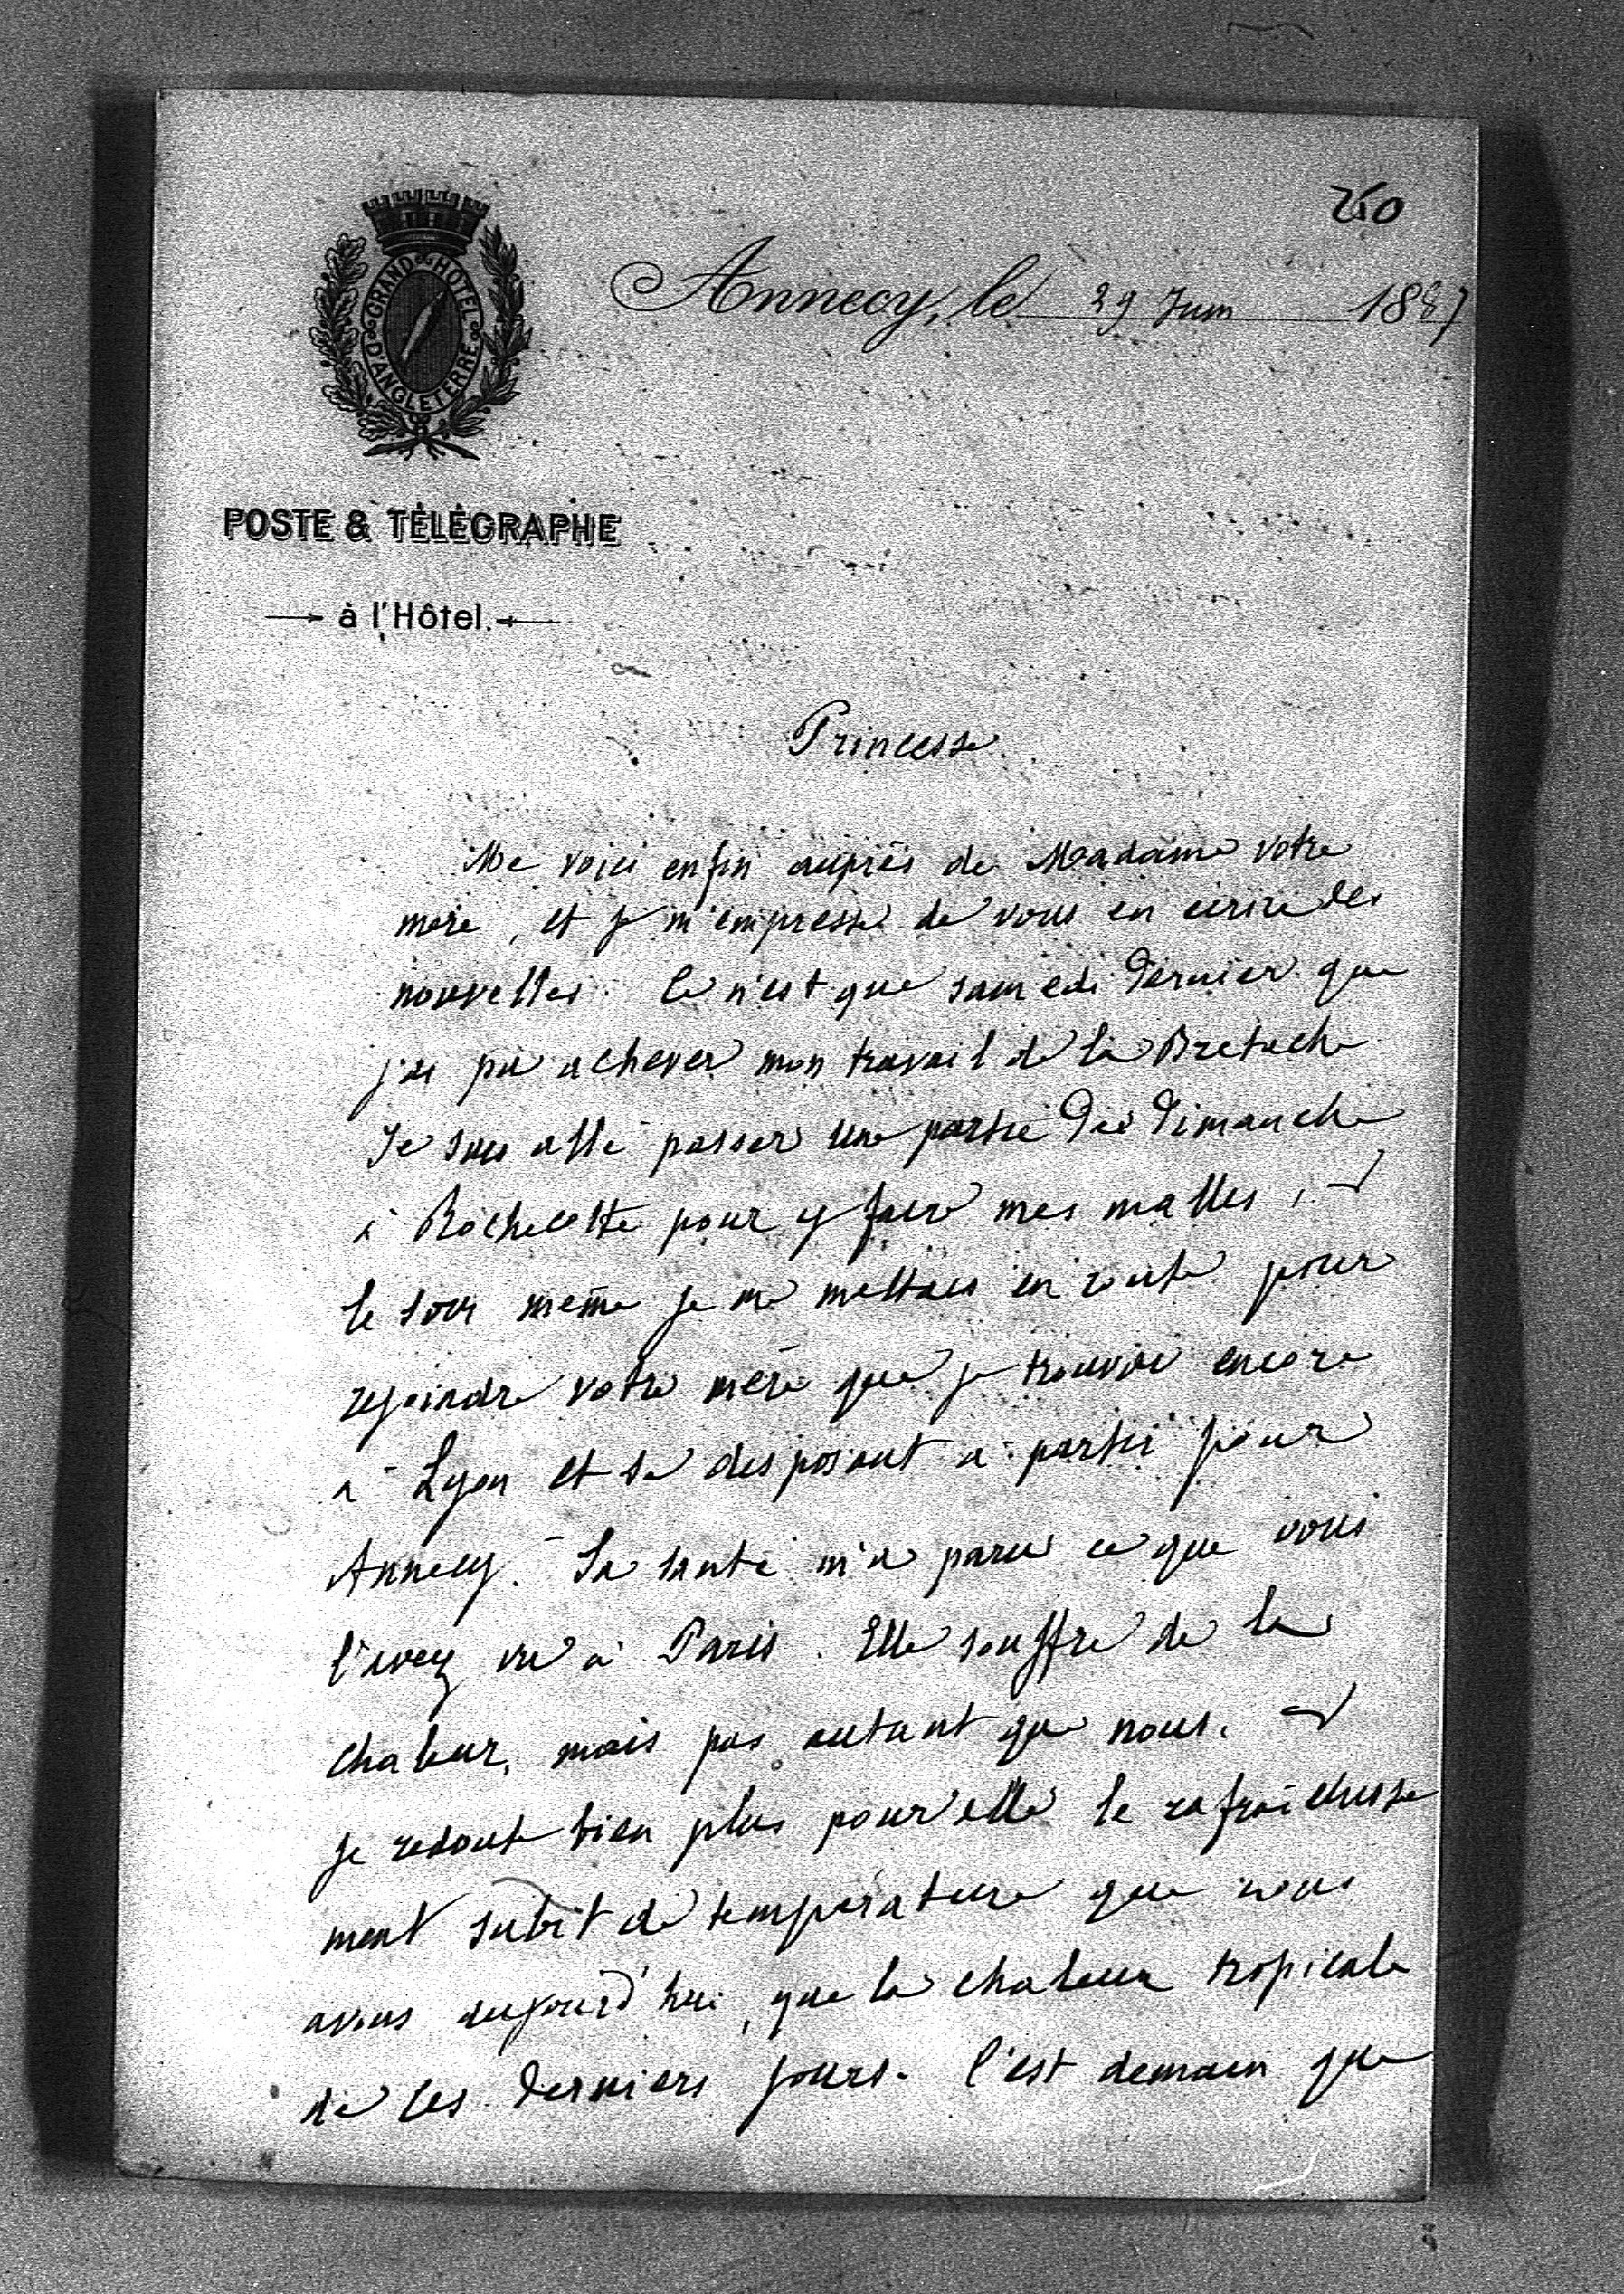 260
GRAND HOTEL D'ANGLETERRE
Annecy, le 29 Juin 1887
POSTE & TÉLÉGRAPHE
à l'Hôtel.
Princesse.
Me voici enfin auprès de Madame votre
mère, et je m'empresse de vous en écrire des
nouvelles. Ce n'est que samedi dernier que
j'ai pu achever mon travail de la Bretache
Je suis allé passer une partie du dimanche
à Rochecotte pour y faire mes malles, et
le soir même je me mettais en route pour
rejoindre votre mère que je trouvai encore
à Lyon et se disposant à partir pour
Annecy. Sa santé m'a paru ce que vous
l'avez vue à Paris. Elle souffre de la
chaleur, mais pas autant que nous. et
je redoute bien plus pour elle le rafraîchisse
ment subit de température que nous
avons aujourd'hui, que la chaleur tropicale
de ces derniers jours. C'est demain que